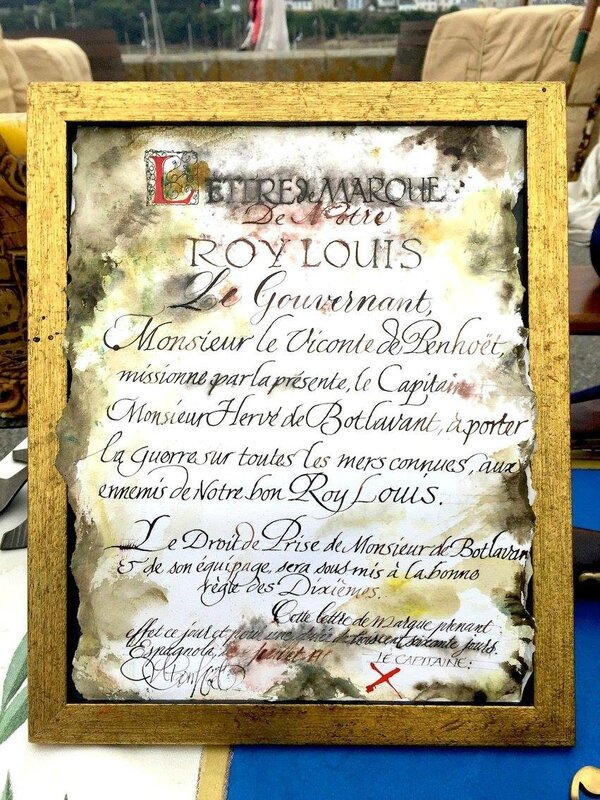 LETTRE de MARQUE
De Notre
ROY LOUIS
Le Gouvernant,
Monsieur le Viconte de Penhoët,
missionne par la présente, le Capitaine
Monsieur Hervé de Botlavant, à porter
la guerre sur toutes les mers connues, aux
ennemis de Notre bon Roy Louis.
Le Droit de Prise de Monsieur de Botlavan
& de son équipage, sera sous mis à la bonne
règle des Dixièmes.
Cette lettre de marque prenant
effet ce jour et pour une durée de trois cent soixante jours.
Espagnola,
LE CAPITAINE:
X